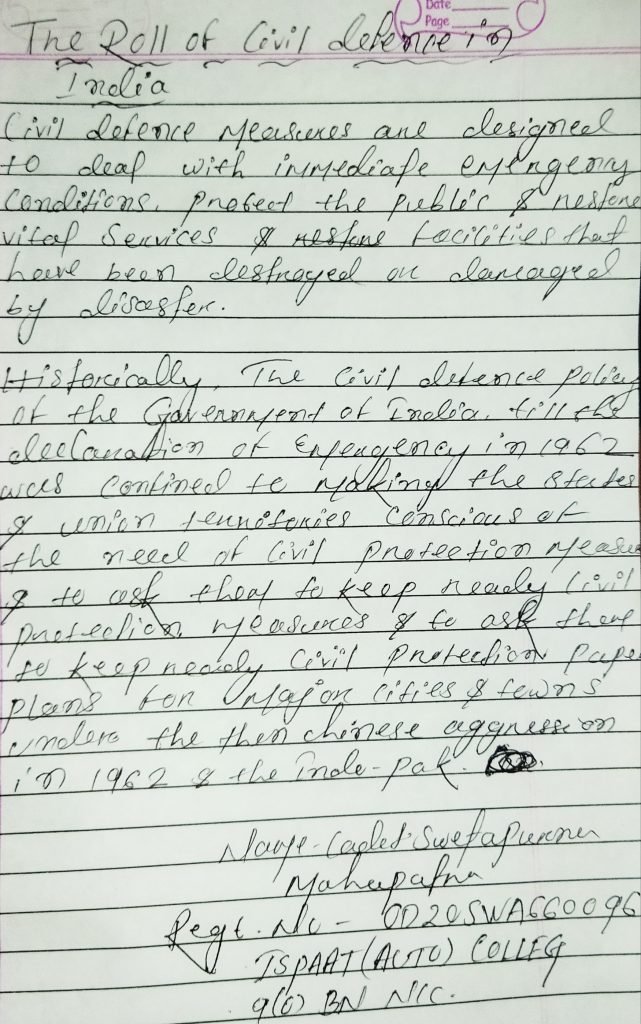 Date
Page
The Roll of Civil defence in
India
Civil defence Measures are designed
to deal with immediate emergency
Conditions, protect the public & restore
vital Services & restore facilities that
have been destroyed or damaged
by disaster.
Historically, The Civil defence Policy
of the Government of India, till the
declaration of Emergency in 1962
was confined to making the states
& union territories conscious of
the need of Civil protection Measu
& to ask them to keep ready Civil
protection measures & to ask them
to keep ready Civil protection pape
plans for major cities & towns
under the then chinese aggression
in 1962 & the Indo-pak.
Name - Cadet Swetapurna
Mahapatra
Regt. No - OD20SWA660096
ISPAAT (AUTO) COLLEG
9(O) BN NCC.